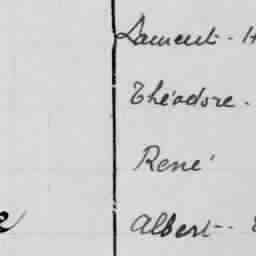 Laurent - H
Théodore -
René
Albert -